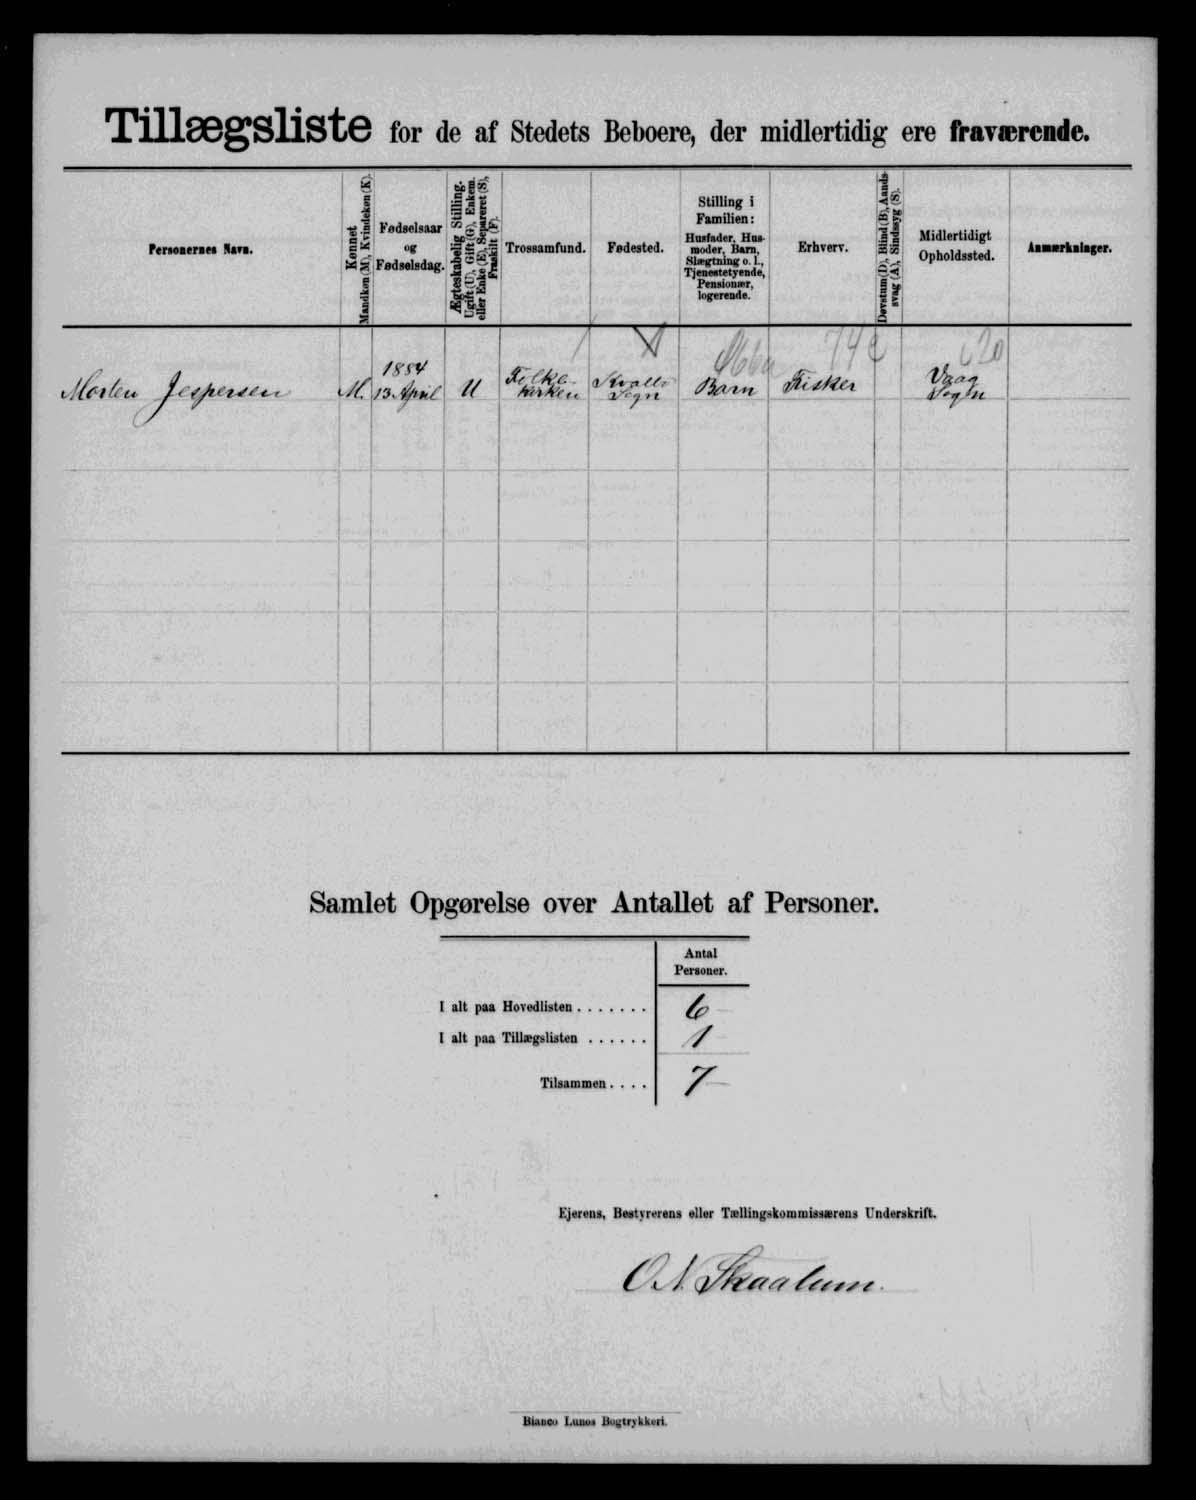 Tillægsliste for de af Stedets Beboere, der midlertidig ere fraværende.
Personernes Navn.
Kønnet
Mandkøn (M), Kvindekøn (K).
Fødselsaar
og
Fødselsdag.
Ægteskabelig Stilling.
Ugift (U), Gift (G), Enkem.
eller Enke (E), Separeret (S),
Fraskilt (F).
Trossamfund.
Fødested.
Stilling i
Familien:
Husfader, Hus-
moder, Barn,
Slægtning o. l.,
Tjenestetyende,
Pensionær,
logerende.
Erhverv.
Døvstum (D), Blind (B), Aands-
svag (A), Sindssyg (S).
Midlertidigt
Opholdssted.
Anmærkninger.
Morten Jespersen
M.
1884
13 April
U
Folke-
kirken
Sogn
Barn
Fisker
Vaag
Sogn
Samlet Opgørelse over Antallet af Personer.
Antal
Personer.
I alt paa Hovedlisten . . . . . . . 6
I alt paa Tillægslisten . . . . . . 1
Tilsammen . . . . 7
Ejerens, Bestyrerens eller Tællingskommissærens Underskrift.
O. N. Skaalum.
Bianco Lunos Bogtrykkeri.